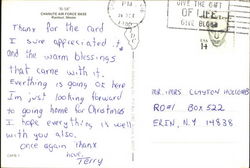 CHANUTE AIR FORCE BASE
Rantoul, Illinois
PM
GIVE THE GIFT
OF LIFE
GIVE BLOOD
14
Thank for the card
I sure appreciated it
and the warm blessings
that came with it.
Everthing is going ok here
I'm just looking forward
to going home for Christmas
I hope everything is well
with you also.
once again thanx
love,
Terry
MR. MRS CLAYTON HOLCOMB
RO#1 BOX 522
ERIN, N.Y 14838